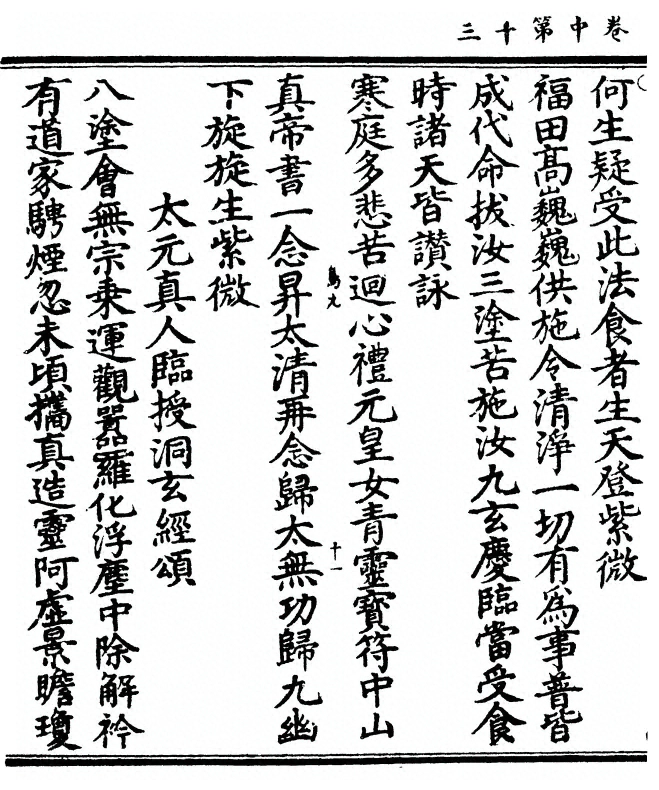 卷中第十三
何生疑受此法食者生天登紫微
福田高巍巍供施令清淨一切有為事普皆
成代命拔汝三塗苦施汝九玄慶臨當受食
時諸天皆讚詠
寒庭多悲苦迴心禮元皇女青靈寶符中山
真帝書一念昇太清再念歸太無功歸九幽
下旋旋生紫微
太元真人臨授洞玄經頌
八塗會無宗乘運觀囂羅化浮塵中際解衿
有道家騁煙忽未頃攜真造靈阿虛景瞻瓊
十一